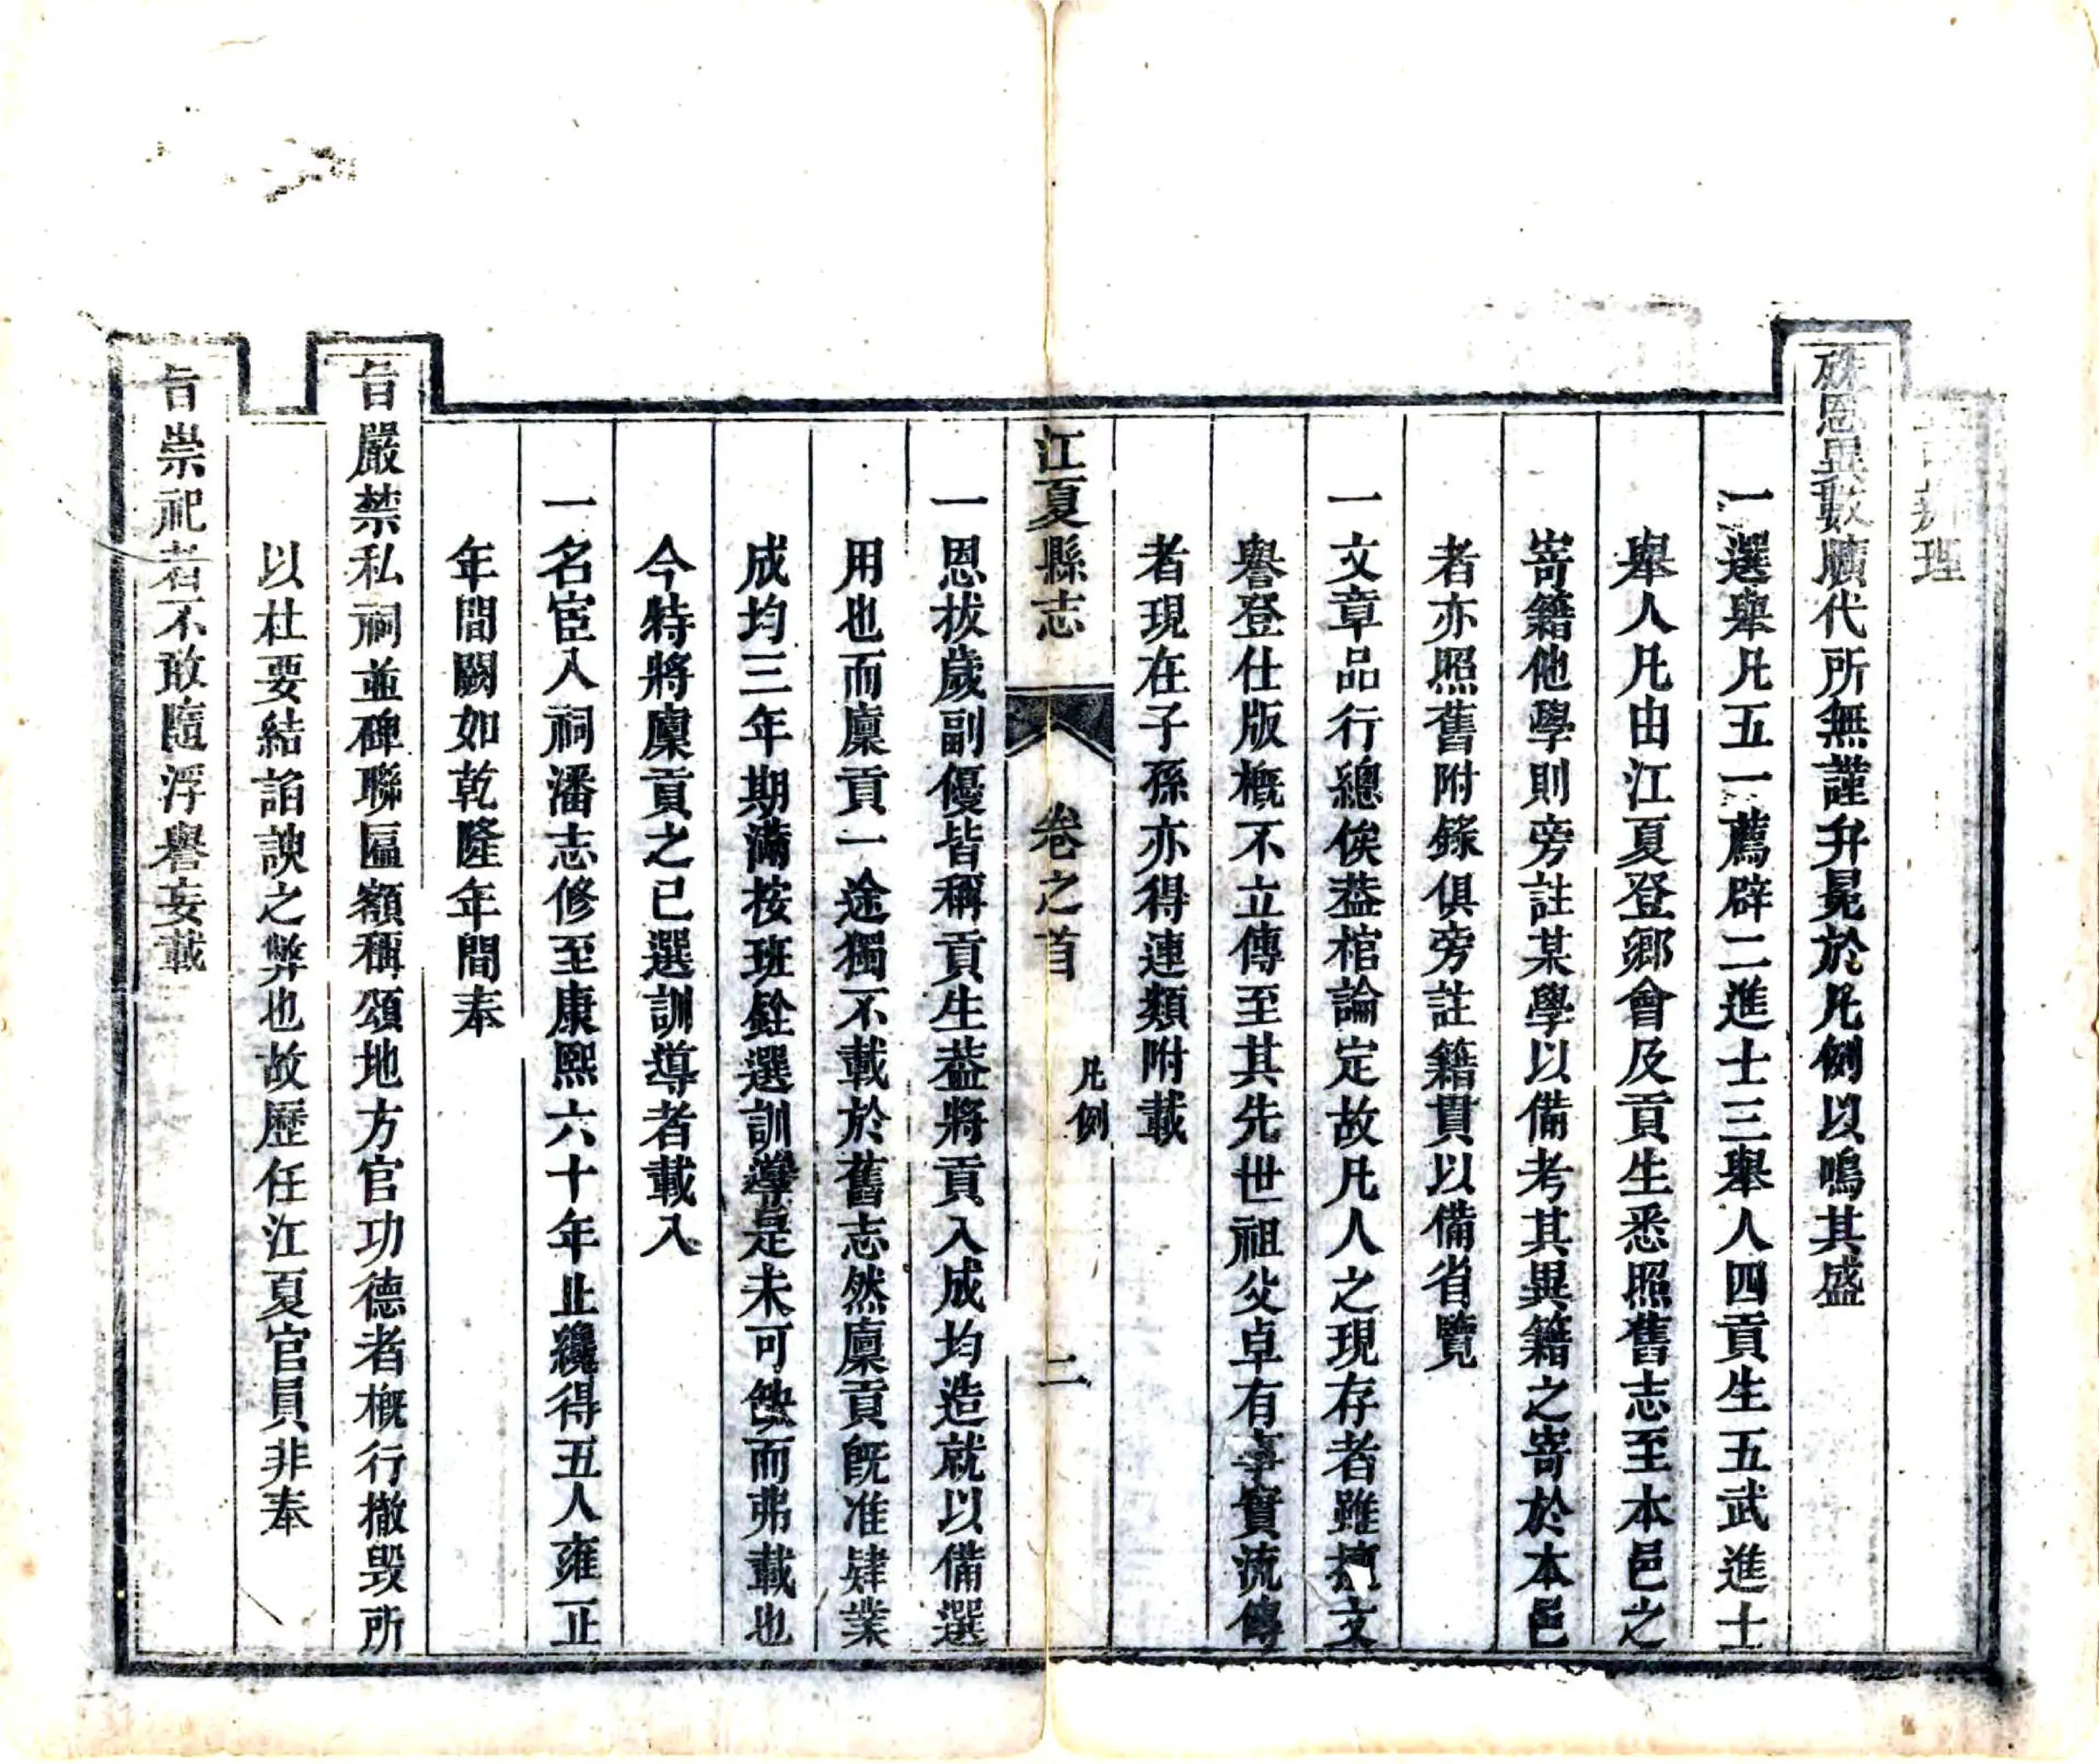 理
恩異數曠代所無謹弁冕於凡例以鳴其盛
一選舉凡五一薦辟二進士三舉人四貢生五武進士
舉人凡由江夏登鄉會及貢生悉照舊志至本邑之
寄籍他學則旁註某學以備考其異籍之寄於本邑
者亦照舊附錄俱旁註籍貫以備省覽
一文章品行總俟葢棺論定故凡人之現存者雖擅文
譽登仕版槪不立傳至其先世祖父卓有事實流傳
者現在子孫亦得連類附載
江夏縣志 卷之首 凡例 二
一恩拔歲副優皆稱貢生葢將貢入成均造就以備選
用也而廩貢一途獨不載於舊志然廩貢旣准肄業
成均三年期滿按班銓選訓導是未可缺而弗載也
今特將廩貢之已選訓導者載入
一名宦入祠潘志修至康熙六十年止纔得五人雍正
年間闕如乾隆年間奉
旨嚴禁私祠並碑聯匾額稱頌地方官功德者槪行撤毁所
以杜要結諂諛之弊也故歷任江夏官員非奉
旨崇祀者不敢隨浮譽妄載